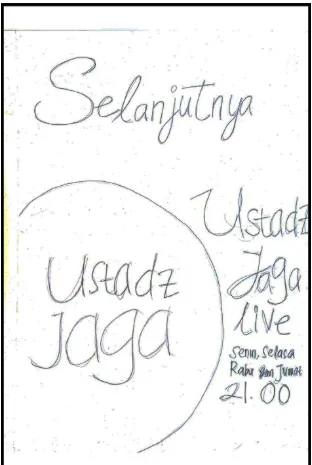 Selanjutnya
Ustadz
Jaga
Ustadz
Jaga
Live
Senin, Selasa
Rabu dan Jumat
21.00